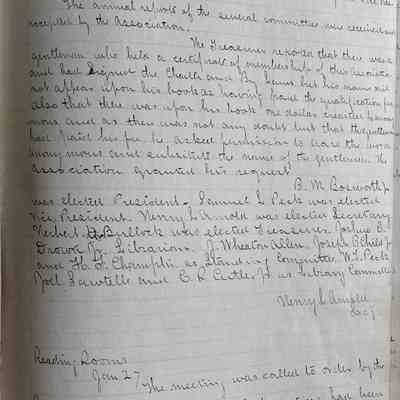 The annual reports of the several committees were received and
accepted by the Association.
The Treasurer reported that there was a
gentleman who held a certificate of membership of this Association
and had signed the Charter and By Laws but his name did
not appear upon his book as having paid the qualification fee
also that there was upon his book one dollar credited to anony
mous and as there was not any doubt but that the gentleman
had paid his fee he asked permission to erase the word
anonymous and substitute the name of the gentleman. The
Association granted his request.
B. M. Bosworth Jr.
was elected President. Samuel L Peck was elected
Vice President. Henry L Arnold was elected Secretary
Herbert Bullock was elected Treasurer Joshua E.
Drown Jr. Librarian. J. Wheaton Allen, Joseph P. Childs Jr
and H. F. Champlin as Standing Committee W. L. Peck
Joel Sawtelle and C. R. Cutler Jr. as Library Committee
Henry L Arnold
Sec'y
Reading Rooms
Jan. 27 The meeting was called to order by the
had been